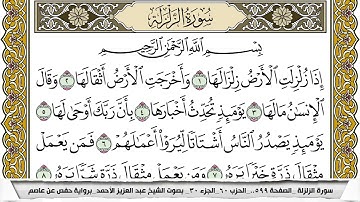 سورة الزلزلة
بِسْمِ اللَّهِ الرَّحْمَٰنِ الرَّحِيمِ
إِذَا زُلْزِلَتِ الْأَرْضُ زِلْزَالَهَا ١ وَأَخْرَجَتِ الْأَرْضُ أَثْقَالَهَا ٢ وَقَالَ
الْإِنسَٰنُ مَا لَهَا ٣ يَوْمَئِذٍ تُحَدِّثُ أَخْبَارَهَا ٤ بِأَنَّ رَبَّكَ أَوْحَىٰ لَهَا ٥
يَوْمَئِذٍ يَصْدُرُ النَّاسُ أَشْتَاتًا لِّيُرَوْا أَعْمَٰلَهُمْ ٦ فَمَن يَعْمَلْ
مِثْقَالَ ذَرَّةٍ خَيْرًا يَرَهُ ٧ وَمَن يَعْمَلْ مِثْقَالَ ذَرَّةٍ شَرًّا يَرَهُ ٨
سورة الزلزلة _الصفحة ٥٩٩_ الحزب ٦٠_الجزء ٣٠_ بصوت الشيخ عبد العزيز الأحمد_برواية حفص عن عاصم